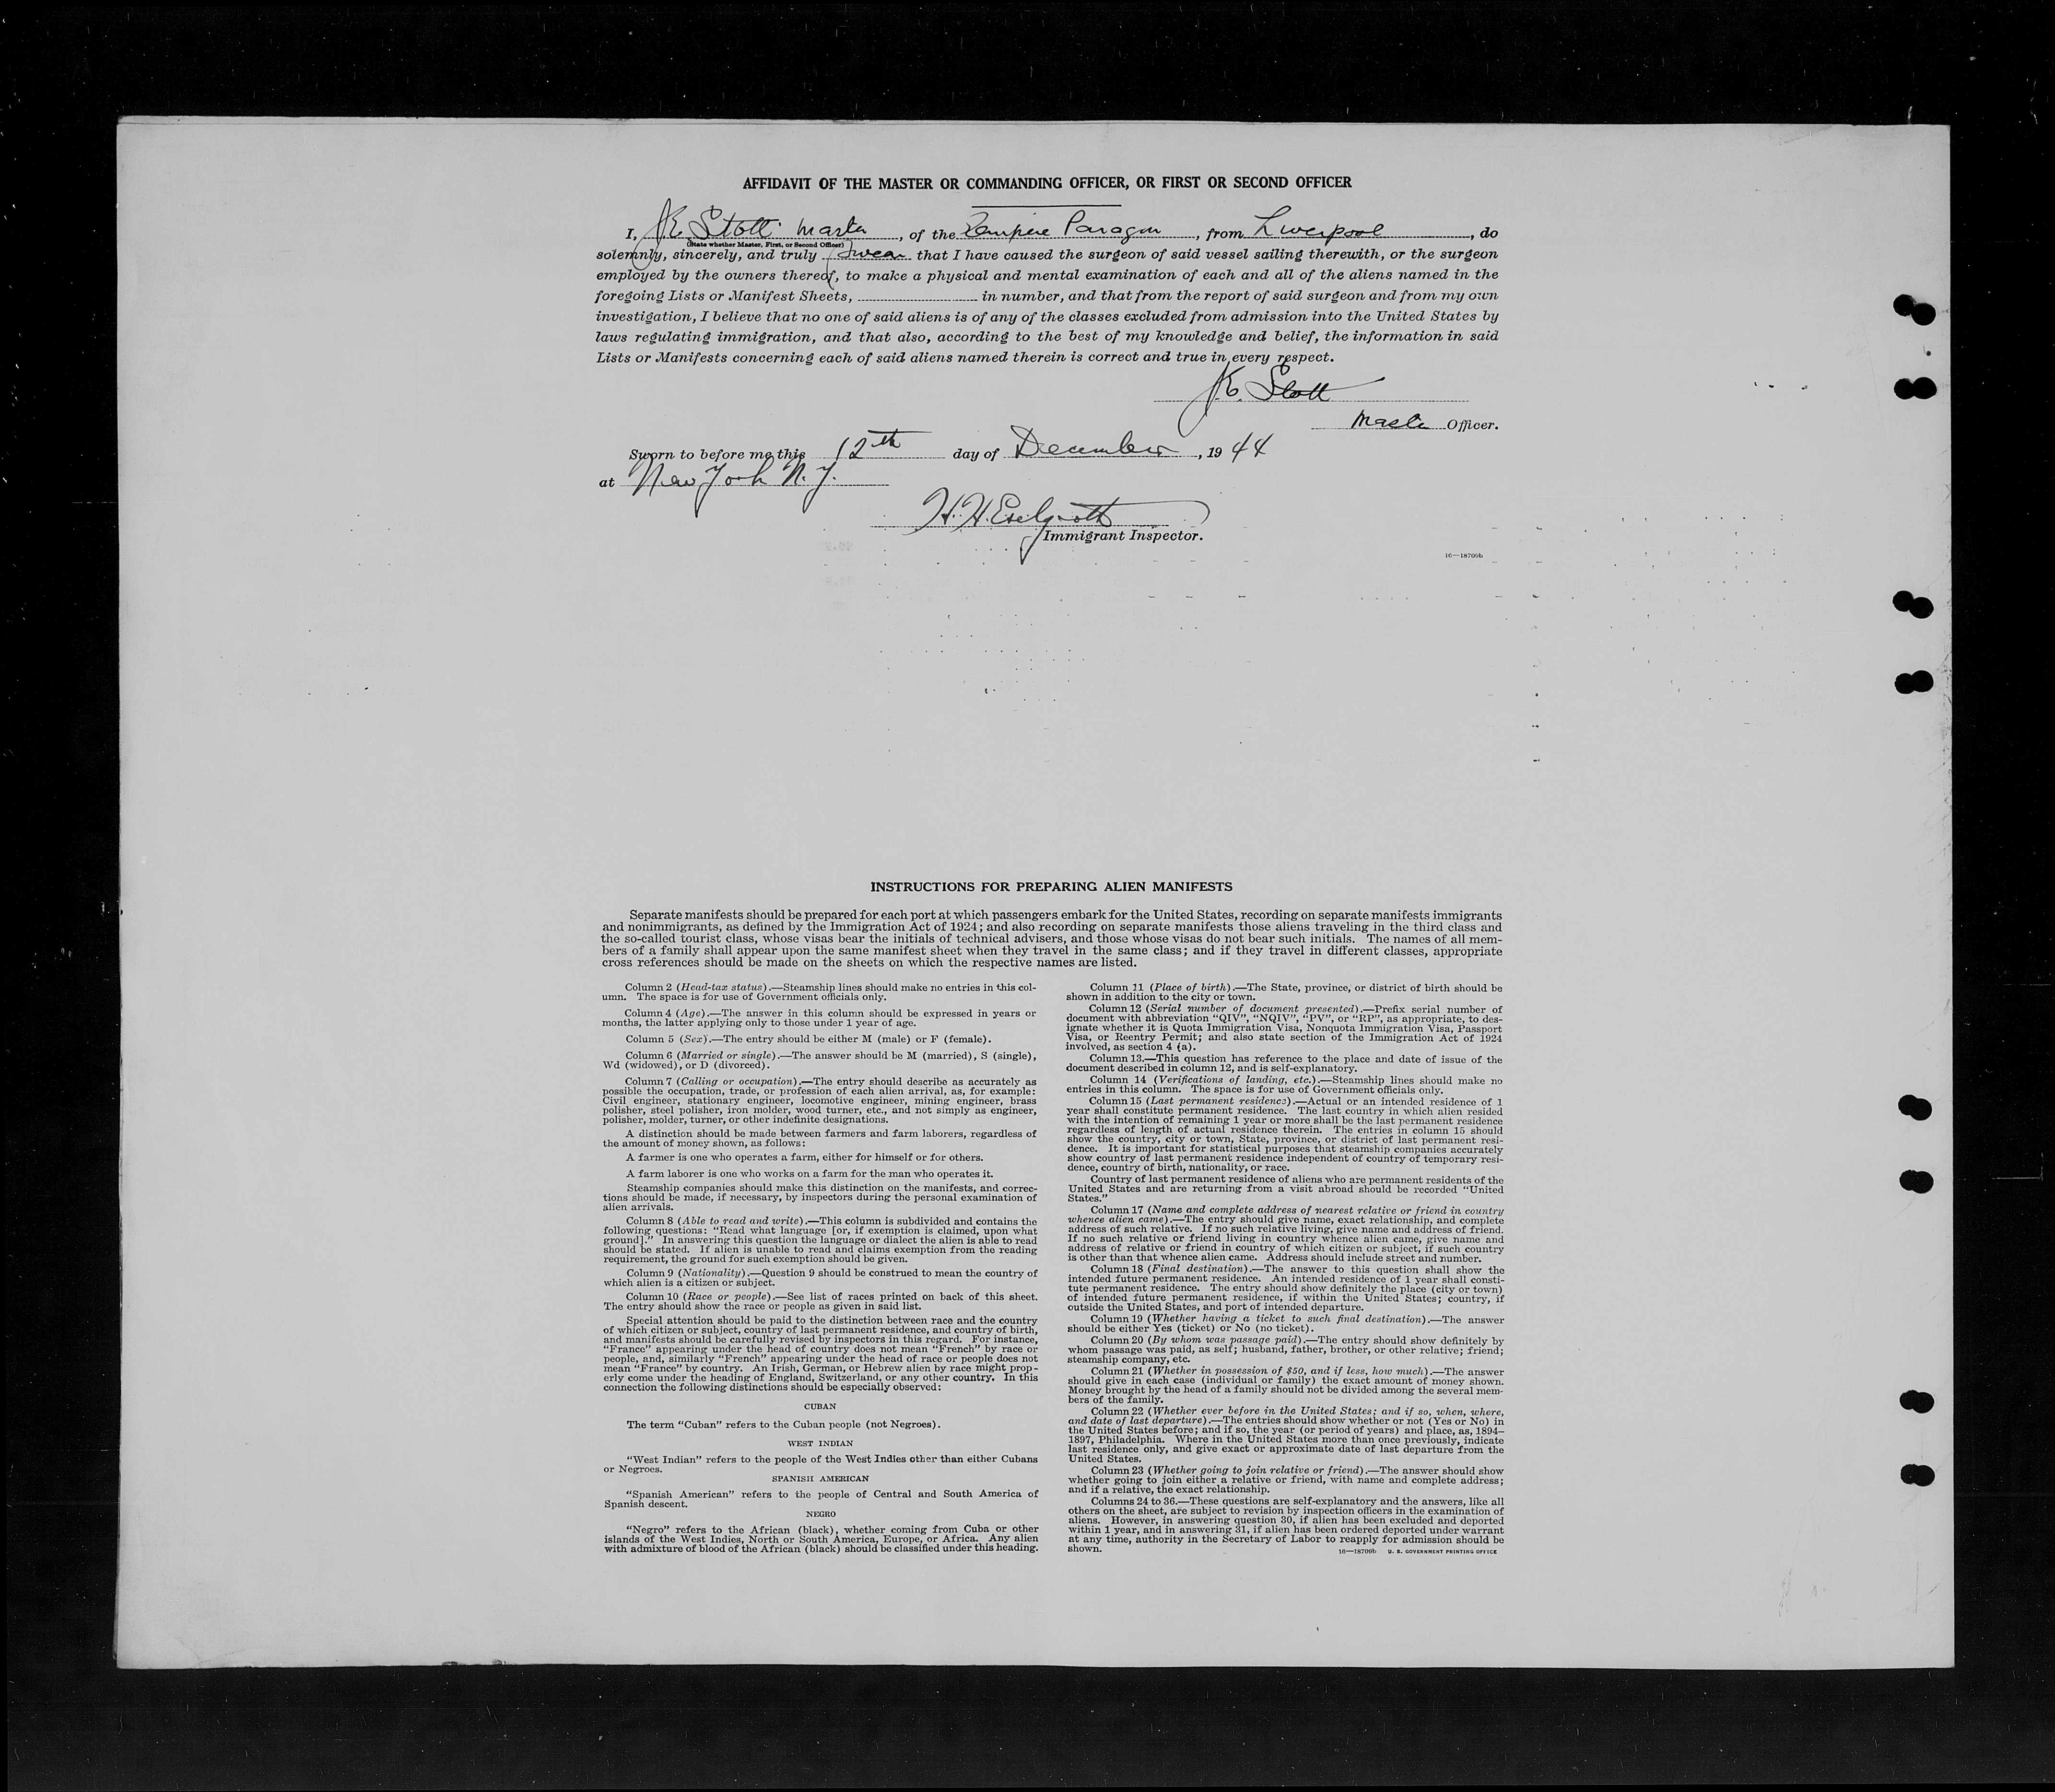 AFFIDAVIT OF THE MASTER OR COMMANDING OFFICER, OR FIRST OR SECOND OFFICER
I, J.E. Stott Master, of the Empire Paragon, from Liverpool, do
(State whether Master, First, or Second Officer)
solemnly, sincerely, and truly swear that I have caused the surgeon of said vessel sailing therewith, or the surgeon
employed by the owners thereof, to make a physical and mental examination of each and all of the aliens named in the
foregoing Lists or Manifest Sheets, in number, and that from the report of said surgeon and from my own
investigation, I believe that no one of said aliens is of any of the classes excluded from admission into the United States by
laws regulating immigration, and that also, according to the best of my knowledge and belief, the information in said
Lists or Manifests concerning each of said aliens named therein is correct and true in every respect.
J.E. Stott
Master Officer.
Sworn to before me this 12th day of December, 1944
at New York N.Y.
H.H.
Immigrant Inspector.
16—18709b
INSTRUCTIONS FOR PREPARING ALIEN MANIFESTS
Separate manifests should be prepared for each port at which passengers embark for the United States, recording on separate manifests immigrants
and nonimmigrants, as defined by the Immigration Act of 1924; and also recording on separate manifests those aliens traveling in the third class and
the so-called tourist class, whose visas bear the initials of technical advisers, and those whose visas do not bear such initials. The names of all mem-
bers of a family shall appear upon the same manifest sheet when they travel in the same class; and if they travel in different classes, appropriate
cross references should be made on the sheets on which the respective names are listed.
Column 2 (Head-tax status).—Steamship lines should make no entries in this col-
umn. The space is for use of Government officials only.
Column 4 (Age).—The answer in this column should be expressed in years or
months, the latter applying only to those under 1 year of age.
Column 5 (Sex).—The entry should be either M (male) or F (female).
Column 6 (Married or single).—The answer should be M (married), S (single),
Wd (widowed), or D (divorced).
Column 7 (Calling or occupation).—The entry should describe as accurately as
possible the occupation, trade, or profession of each alien arrival, as, for example:
Civil engineer, stationary engineer, locomotive engineer, mining engineer, brass
polisher, steel polisher, iron molder, wood turner, etc., and not simply as engineer,
polisher, molder, turner, or other indefinite designations.
A distinction should be made between farmers and farm laborers, regardless of
the amount of money shown, as follows:
A farmer is one who operates a farm, either for himself or for others.
A farm laborer is one who works on a farm for the man who operates it.
Steamship companies should make this distinction on the manifests, and correc-
tions should be made, if necessary, by inspectors during the personal examination of
alien arrivals.
Column 8 (Able to read and write).—This column is subdivided and contains the
following questions: “Read what language [or, if exemption is claimed, upon what
ground].” In answering this question the language or dialect the alien is able to read
should be stated. If alien is unable to read and claims exemption from the reading
requirement, the ground for such exemption should be given.
Column 9 (Nationality).—Question 9 should be construed to mean the country of
which alien is a citizen or subject.
Column 10 (Race or people).—See list of races printed on back of this sheet.
The entry should show the race or people as given in said list.
Special attention should be paid to the distinction between race and the country
of which citizen or subject, country of last permanent residence, and country of birth,
and manifests should be carefully revised by inspectors in this regard. For instance,
“France” appearing under the head of country does not mean “French” by race or
people, and, similarly “French” appearing under the head of race or people does not
mean “France” by country. An Irish, German, or Hebrew alien by race might prop-
erly come under the heading of England, Switzerland, or any other country. In this
connection the following distinctions should be especially observed:
CUBAN
The term “Cuban” refers to the Cuban people (not Negroes).
WEST INDIAN
“West Indian” refers to the people of the West Indies other than either Cubans
or Negroes.
SPANISH AMERICAN
“Spanish American” refers to the people of Central and South America of
Spanish descent.
NEGRO
“Negro” refers to the African (black), whether coming from Cuba or other
islands of the West Indies, North or South America, Europe, or Africa. Any alien
with admixture of blood of the African (black) should be classified under this heading.
Column 11 (Place of birth).—The State, province, or district of birth should be
shown in addition to the city or town.
Column 12 (Serial number of document presented).—Prefix serial number of
document with abbreviation “QIV”, “NQIV”, “PV”, or “RP”, as appropriate, to des-
ignate whether it is Quota Immigration Visa, Nonquota Immigration Visa, Passport
Visa, or Reentry Permit; and also state section of the Immigration Act of 1924
involved, as section 4 (a).
Column 13.—This question has reference to the place and date of issue of the
document described in column 12, and is self-explanatory.
Column 14 (Verifications of landing, etc.).—Steamship lines should make no
entries in this column. The space is for use of Government officials only.
Column 15 (Last permanent residence).—Actual or an intended residence of 1
year shall constitute permanent residence. The last country in which alien resided
with the intention of remaining 1 year or more shall be the last permanent residence
regardless of length of actual residence therein. The entries in column 15 should
show the country, city or town, State, province, or district of last permanent resi-
dence. It is important for statistical purposes that steamship companies accurately
show country of last permanent residence independent of country of temporary resi-
dence, country of birth, nationality, or race.
Country of last permanent residence of aliens who are permanent residents of the
United States and are returning from a visit abroad should be recorded “United
States.”
Column 17 (Name and complete address of nearest relative or friend in country
whence alien came).—The entry should give name, exact relationship, and complete
address of such relative. If no such relative living, give name and address of friend.
If no such relative or friend living in country whence alien came, give name and
address of relative or friend in country of which citizen or subject, if such country
is other than that whence alien came. Address should include street and number.
Column 18 (Final destination).—The answer to this question shall show the
intended future permanent residence. An intended residence of 1 year shall consti-
tute permanent residence. The entry should show definitely the place (city or town)
of intended future permanent residence, if within the United States; country, if
outside the United States, and port of intended departure.
Column 19 (Whether having a ticket to such final destination).—The answer
should be either Yes (ticket) or No (no ticket).
Column 20 (By whom was passage paid).—The entry should show definitely by
whom passage was paid, as self; husband, father, brother, or other relative; friend;
steamship company, etc.
Column 21 (Whether in possession of $50, and if less, how much).—The answer
should give in each case (individual or family) the exact amount of money shown.
Money brought by the head of a family should not be divided among the several mem-
bers of the family.
Column 22 (Whether ever before in the United States; and if so, when, where,
and date of last departure).—The entries should show whether or not (Yes or No) in
the United States before; and if so, the year (or period of years) and place, as, 1894–
1897, Philadelphia. Where in the United States more than once previously, indicate
last residence only, and give exact or approximate date of last departure from the
United States.
Column 23 (Whether going to join relative or friend).—The answer should show
whether going to join either a relative or friend, with name and complete address;
and if a relative, the exact relationship.
Columns 24 to 36.—These questions are self-explanatory and the answers, like all
others on the sheet, are subject to revision by inspection officers in the examination of
aliens. However, in answering question 30, if alien has been excluded and deported
within 1 year, and in answering 31, if alien has been ordered deported under warrant
at any time, authority in the Secretary of Labor to reapply for admission should be
shown.
16—18709b U. S. GOVERNMENT PRINTING OFFICE